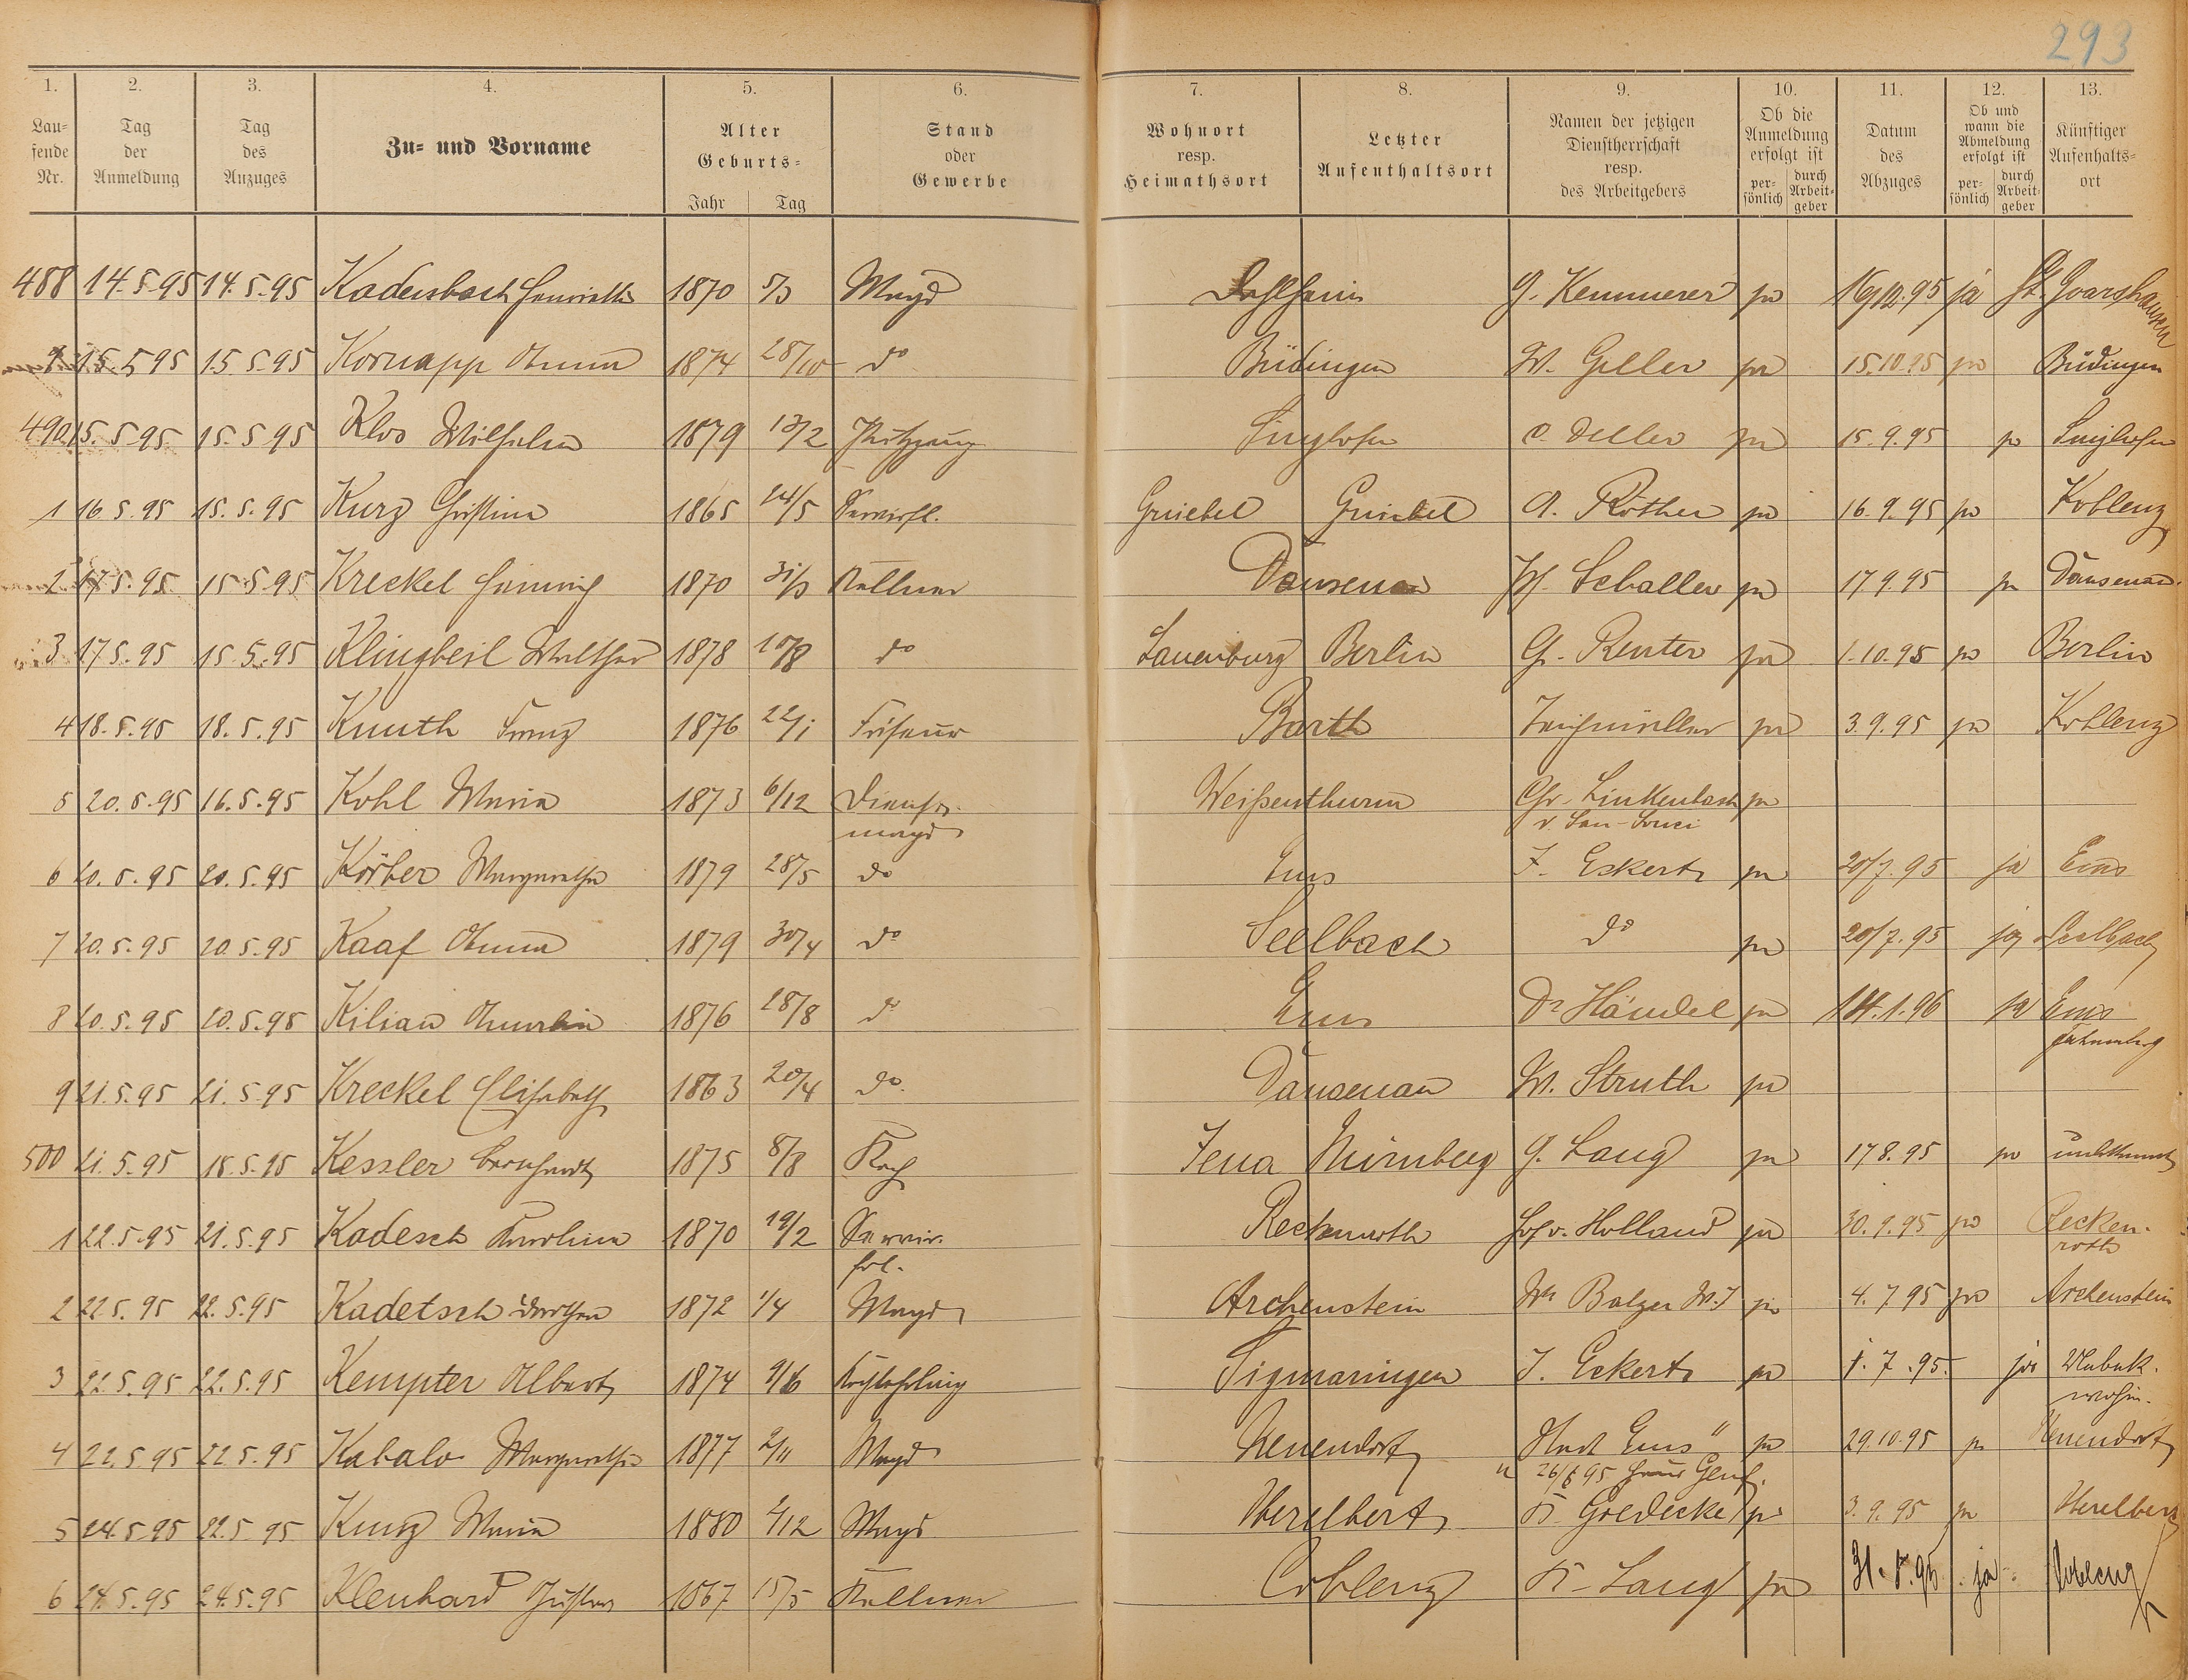 293
1. 2. 3. 4. 5. 6. 7. 8. 9. 10. 11. 12. 13.
Lau-
fende
Nr.
Tag
der
Anmeldung
Tag
des
Anzuges
Zu- und Vorname
Alter
Geburts-
Jahr Tag
Stand
oder
Gewerbe
Wohnort
resp.
Heimathsort
Letzter
Aufenthaltsort
Namen der jetzigen
Dienstherrschaft
resp.
des Arbeitgebers
Ob die
Anmeldung
erfolgt ist
per-
sönlich
durch
Arbeit-
geber
Datum
des
Abzuges
Ob und
wann die
Abmeldung
erfolgt ist
per-
sönlich
durch
Arbeit-
geber
Künftiger
Aufenhalts-
ort
488 14.5.95 14.5.95 Kadensbach Henriette 1870 5/3 Magd Dahlheim G. Kemmerer ja .95 ja St. Goarshausen
9 15.5 95 15.5.95 Kornapp Anna 1874 28/10 do Büdingen W. Geller ja 15.10.95 ja Büdingen
490 15.5.95 15.5 95 Klos Wilhelm 1879 13/2 Singhofen ja 15.9.95 ja Singhofen
1 16.5.95 15.5.95 Kurz Christina 1865 24/5 Servirfl. Griebel Griebel A. Röther ja 16.9.95 ja Koblenz
2 17.5.95 15.5.95 Kreckel Heinrich 1870 31/3 Kellner Dausenau Schaller ja 17.9.95 ja Dausenau.
3 17.5.95 15.5.95 Klingbeil Walther 1878 10/8 do Lauenburg Berlin G. Reuter ja 1.10.95 ja Berlin
4 18.5.95 18.5.95 Knuth Franz 1876 22/1 Friseur Barth ja 3.9.95 ja Koblenz
5 20.5.95 16.5.95 Kohl Maria 1873 6/12 Dienst- Weißenthurm Chr. Linkenbach ja
magd v. San-Souci
6 20.5.95 20.5.95 Körber Margarethe 1879 28/5 do Ems J. Eckert ja 20/7.95 ja Ems
7 20.5.95 20.5.95 Kaaf Anna 1879 30/4 do Seelbach do ja 20/7.95 ja Seelbach
8 20.5.95 20.5.95 Kilian 1876 28/8 do Ems Dr Händel ja 14.1.96 ja Ems
9 21.5.95 21.5.95 Kreckel Elisabeth 1863 20/4 do. Dausenau W. Struth ja
500 21.5.95 18.5.95 Kessler Bernhardt 1875 8/8 Koch Jena Nürnberg G. Lang ja 17.8.95 ja unbekannt
1 22.5.95 21.5.95 Kadesch Karoline 1870 19/2 Servir- Reckenroth Hof v. Holland ja 30.9.95 ja Recken-
frl. roth
2 22.5.95 22.5.95 Kadetsch Dorothea 1872 1/4 Magd Archenstein Ww Balzer ja 4.7 95 ja Archenstein
3 22.5.95 22.5.95 Kempter Albert 1874 9/6 Kochlehrling Sigmaringen J. Eckert ja 1.7.95. ja Unbek.
wohin.
4 22.5 95 22.5.95 Kabalo Margarethe 1877 2/11 Magd Neuendorf Stadt Ems" ja 29.10.95 ja Neuendorf
5 24.5.95 22.5 95 Kunz Maria 1880 2/12 Magd K. Goedecke ja 3.9.95 ja
6 24.5.95 24.5.95 Klenhard Gustav 1867 15/5 Kellner Coblenz K. Lang ja ja Coblenz